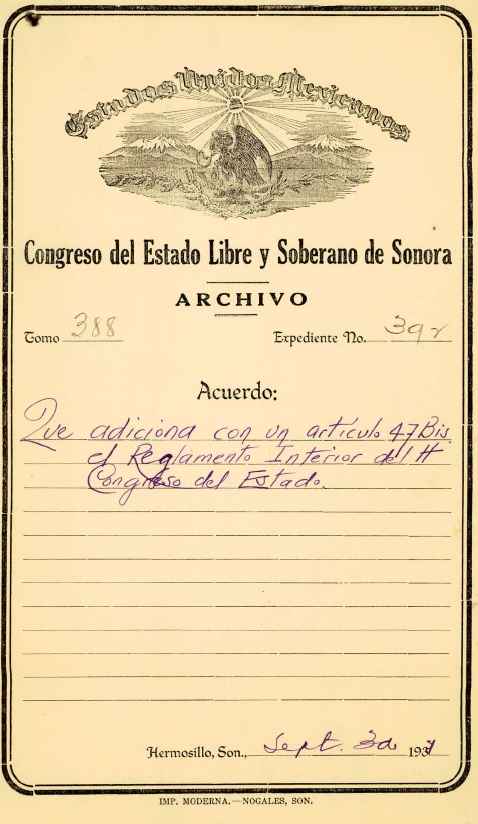 Estados Unidos Mexicanos
Congreso del Estado Libre y Soberano de Sonora
ARCHIVO
Tomo 388 Expediente No. 392
Acuerdo:
Que adiciona con un artículo 47 Bis.
el Reglamento Interior del H
Congreso del Estado.
Hermosillo, Son., Sept. 193
IMP. MODERNA.—NOGALES, SON.